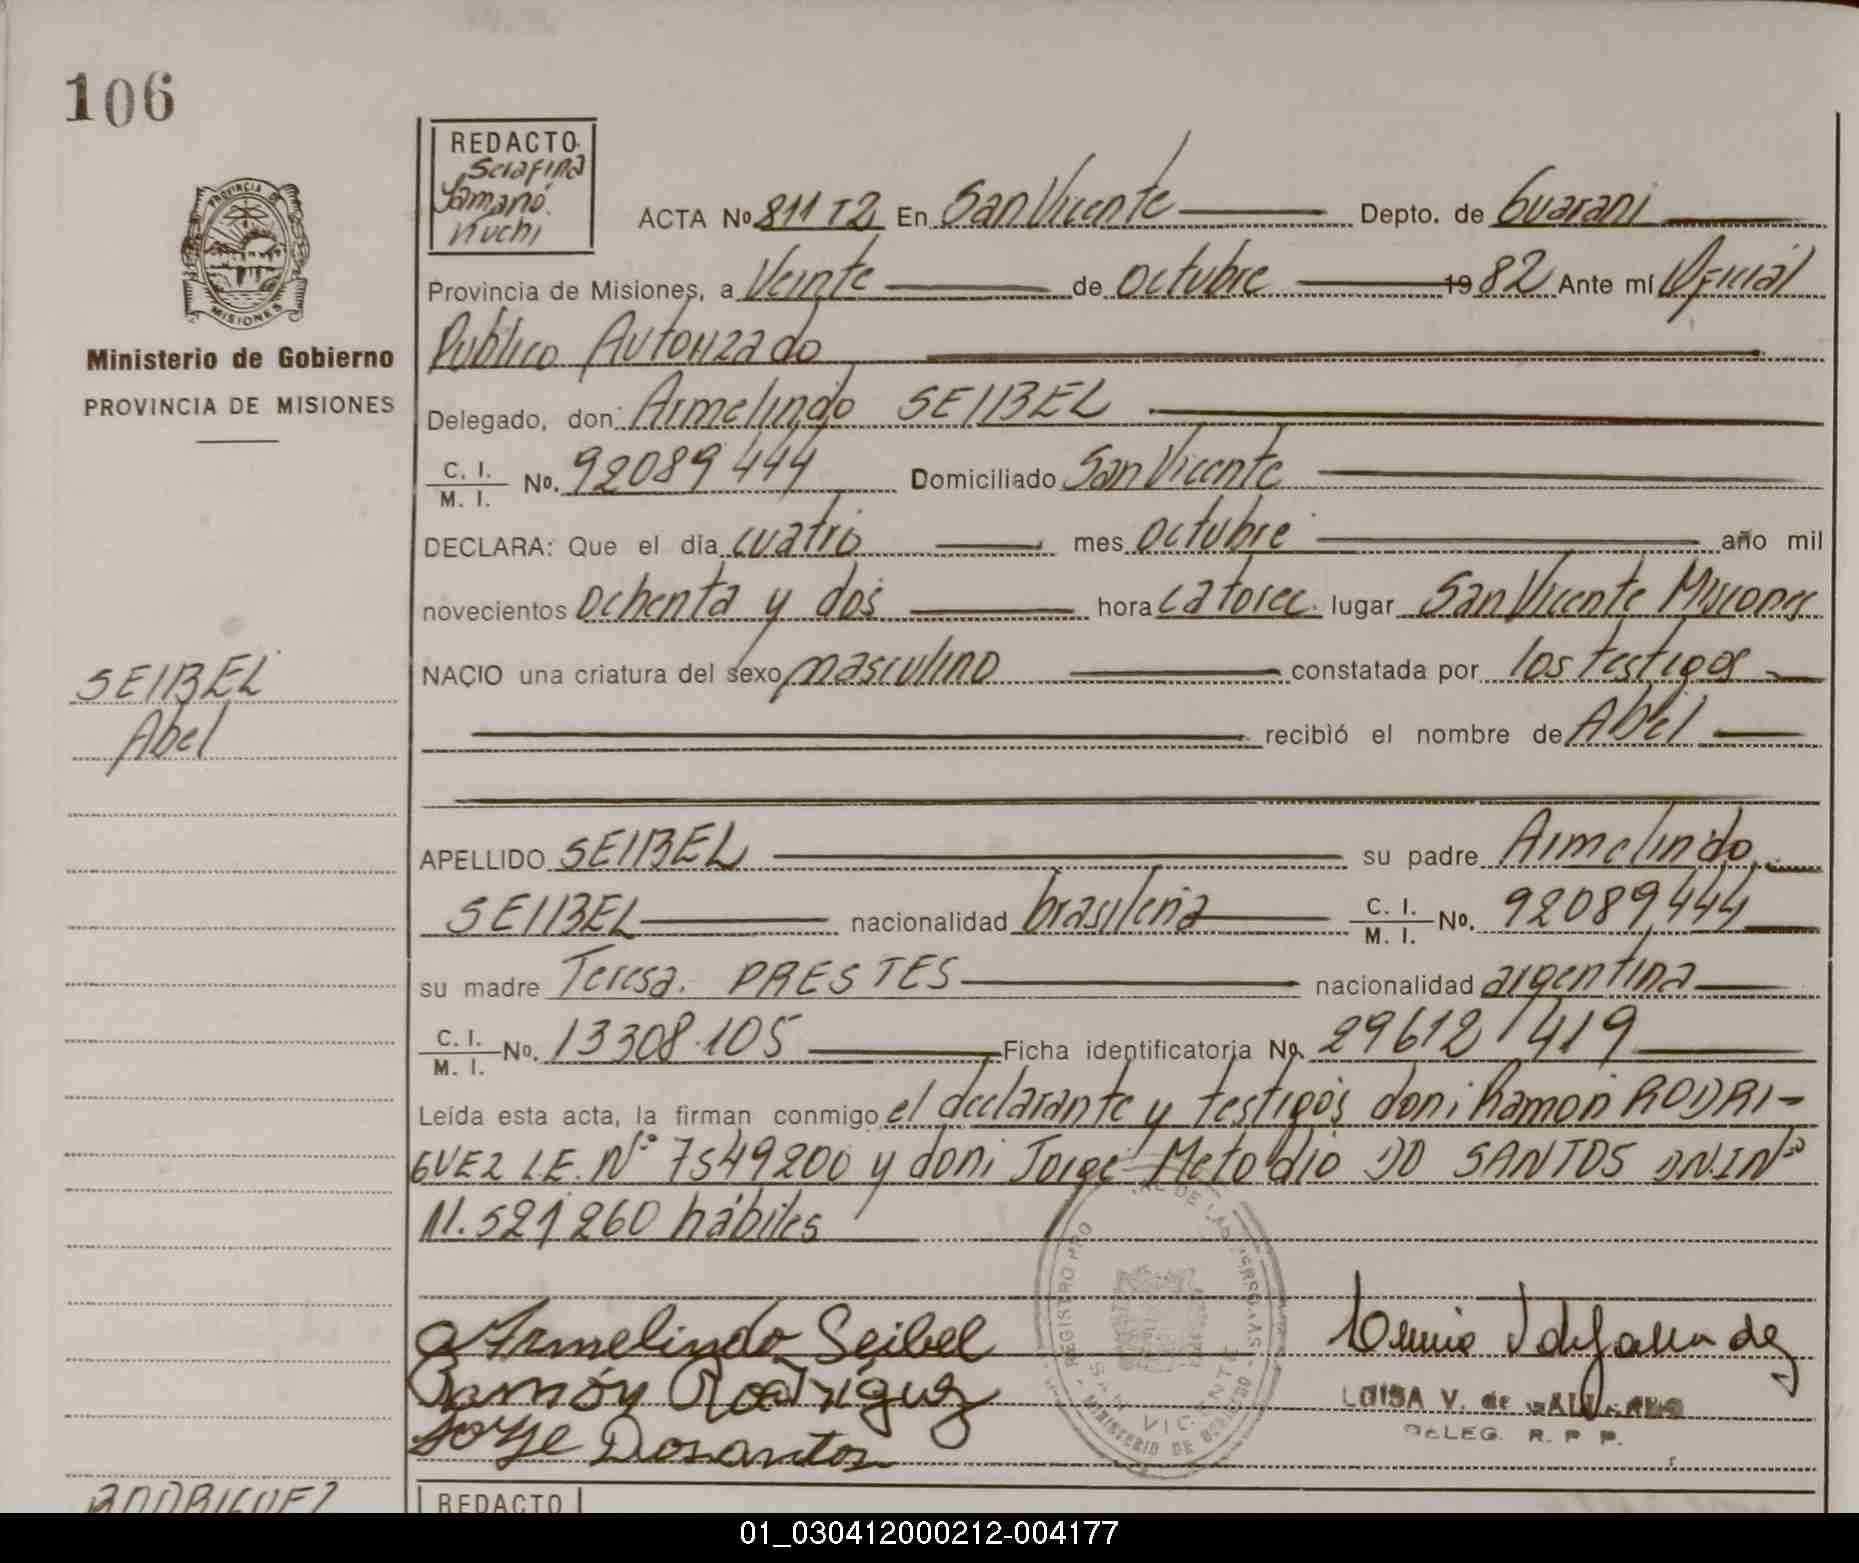 106
REDACTO
Serafina
Tamañó
Kuchi
PROVINCIA DE
MISIONES
Ministerio de Gobierno
PROVINCIA DE MISIONES
ACTA No 811 T2 En San Vicente Depto. de Guarani
Provincia de Misiones, a Veinte de octubre 1982 Ante mí Oficial
Publico Autorizado
Delegado, don Armelindo SEIBEL
C. I. / M. I. No. 92089444 Domiciliado San Vicente
DECLARA: Que el día cuatro mes octubre año mil
novecientos ochenta y dos hora catorce lugar San Vicente Misiones
NACIO una criatura del sexo masculino constatada por los testigos
recibió el nombre de Abel
SEIBEL
Abel
APELLIDO SEIBEL su padre Armelindo
SEIBEL nacionalidad brasileña C. I. / M. I. No. 92089444
su madre Teresa. PRESTES nacionalidad argentina
C. I. / M. I. No. 13308.105 Ficha identificatoria No. 29612/419
Leída esta acta, la firman conmigo el declarante y testigos don: Ramon RODRI-
GUEZ LE. N° 7549200 y don: Jorge Metodio DO SANTOS DNI N°
11.521260 hábiles
REGISTRO PRO DE LAS PERSONAS
SAN VICENTE
MINISTERIO DE GOBIERNO
Armelindo Seibel
Ramón Rodriguez
Jorge Dosantos
LUISA V. de
DELEG. R. P. P.
RODRIGUEZ
REDACTO
01_030412000212-004177